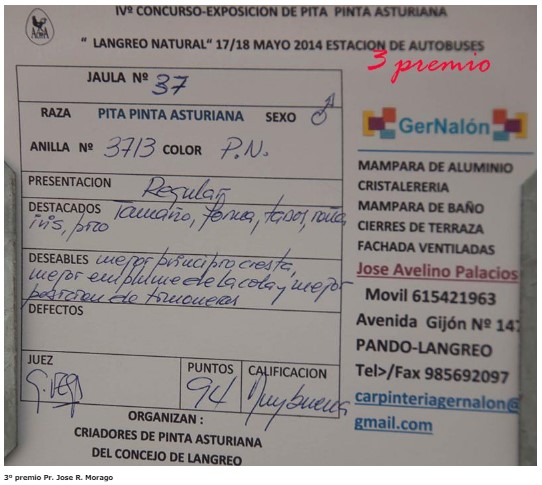 IVº CONCURSO-EXPOSICION DE PITA PINTA ASTURIANA
" LANGREO NATURAL" 17/18 MAYO 2014 ESTACION DE AUTOBUSES
3 premio
JAULA Nº 37
RAZA PITA PINTA ASTURIANA SEXO ♂
ANILLA Nº 3713 COLOR P.N.
PRESENTACION Regular
DESTACADOS Tamaño, forma, tarsos,
iris, pico
DESEABLES mejor principio cresta,
mejor emplume de la cola y mejor
posicion de timoneras
DEFECTOS
JUEZ
PUNTOS 94
CALIFICACION Muy buena
ORGANIZAN :
CRIADORES DE PINTA ASTURIANA
DEL CONCEJO DE LANGREO
GerNalón
MAMPARA DE ALUMINIO
CRISTALERERIA
MAMPARA DE BAÑO
CIERRES DE TERRAZA
FACHADA VENTILADAS
Jose Avelino Palacios
Movil 615421963
Avenida Gijón Nº 147
PANDO-LANGREO
Tel>/Fax 985692097
carpinteriagernalon@
gmail.com
3º premio Pr. Jose R. Morago